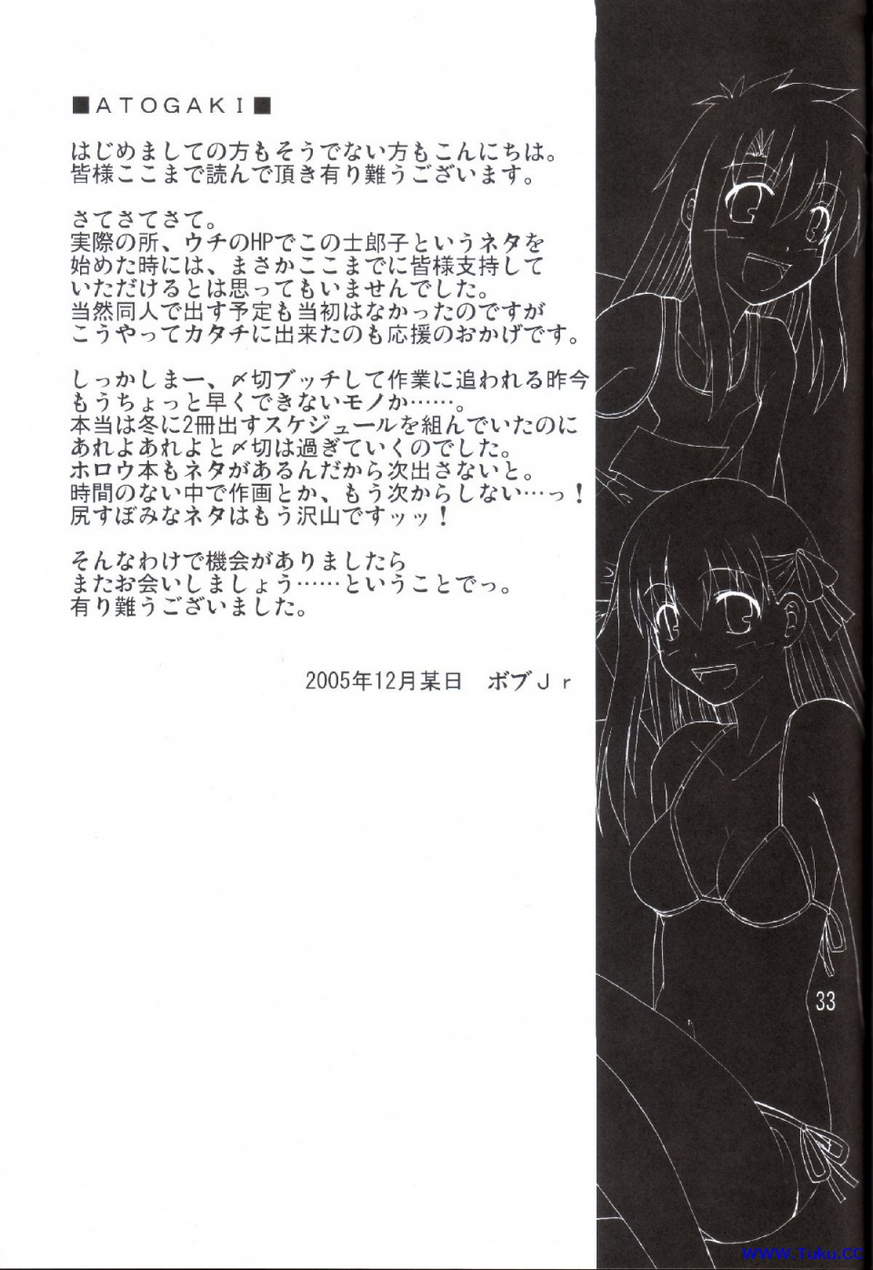 ■ATOGAKI■
はじめましての方もそうでない方もこんにちは。
皆様ここまで読んで頂き有り難うございます。
さてさてさて。
実際の所、ウチのHPでこの士郎子というネタを
始めた時には、まさかここまでに皆様支持して
いただけるとは思ってもいませんでした。
当然同人で出す予定も当初はなかったのですが
こうやってカタチに出来たのも応援のおかげです。
しっかしまー、〆切ブッチして作業に追われる昨今
もうちょっと早くできないモノか……。
本当は冬に2冊出すスケジュールを組んでいたのに
あれよあれよと〆切は過ぎていくのでした。
ホロウ本もネタがあるんだから次出さないと。
時間のない中で作画とか、もう次からしない…っ!
尻すぼみなネタはもう沢山ですッッ!
そんなわけで機会がありましたら
またお会いしましょう……ということでっ。
有り難うございました。
2005年12月某日　ボブJr
33
WWW.Tuku.CC